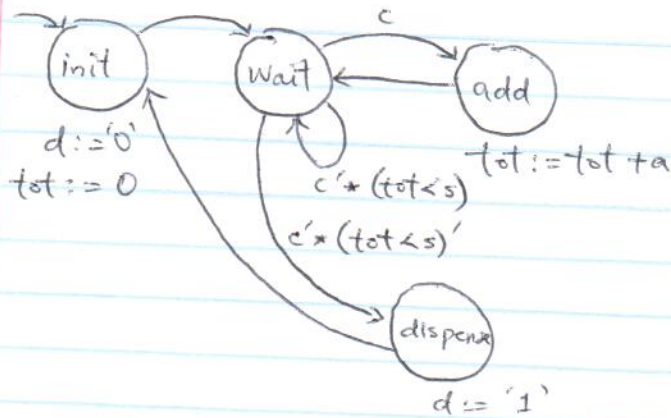 c
init
Wait
add
d:='0'
tot:=0
tot:=tot+a
c'*(tot<s)
c'*(tot<s)'
dispense
d:='1'